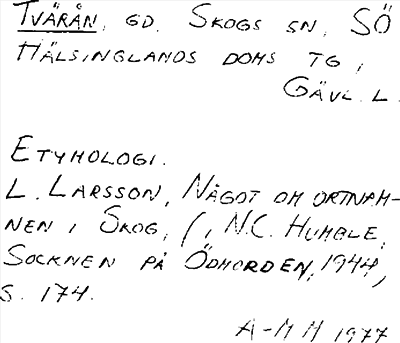 TVÄRÅN, GD. SKOGS SN, SÖ
HÄLSINGLANDS DOMS TG,
GÄVL. L.
ETYMOLOGI.
L. LARSSON, NÅGOT OM ORTNAM-
NEN I SKOG, (I, N.C. HUMBLE,
SOCKNEN PÅ ÖDMORDEN, 1944,
S. 174.
A-M H 1977